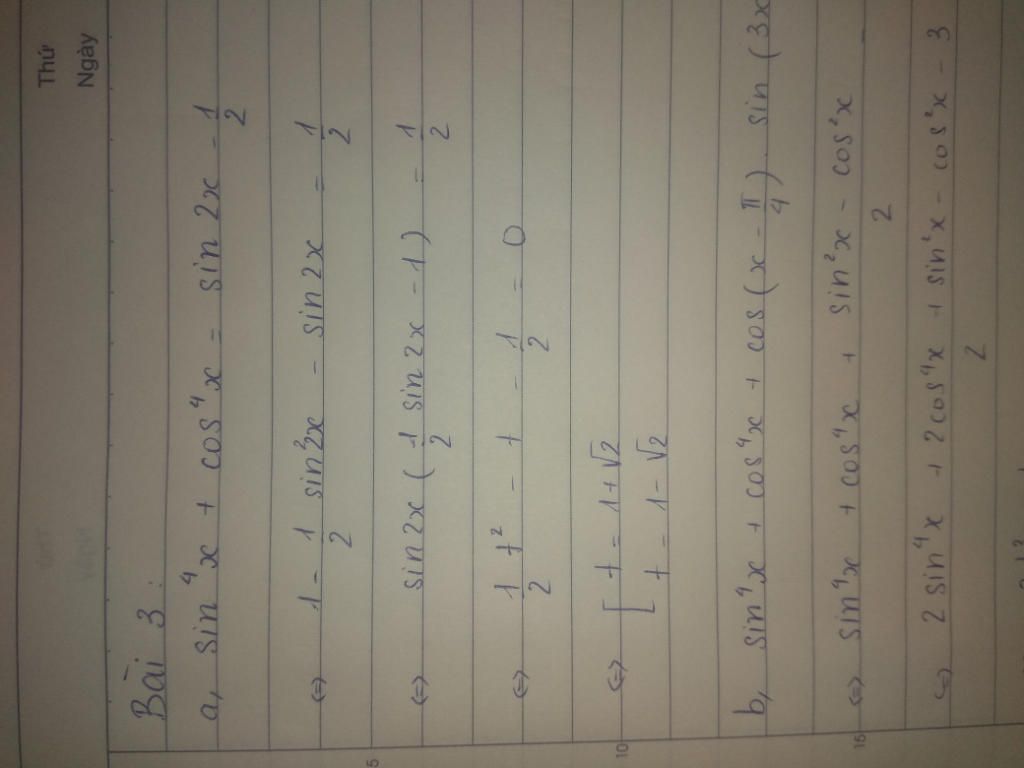 Thứ
Ngày
Bài 3:
a, sin⁴x + cos⁴x = sin 2x - 1/2
⇔ 1 - 1/2 sin²2x - sin 2x = 1/2
⇔ sin 2x (1/2 sin 2x - 1) = 1/2
⇔ 1/2 t² - t - 1/2 = 0
⇔ [ t = 1 + √2
t = 1 - √2
b, sin⁴x + cos⁴x + cos(x - π/4) . sin(3x
⇔ sin⁴x + cos⁴x + (sin²x - cos²x)/2 -
⇔ (2 sin⁴x + 2cos⁴x + sin²x - cos²x - 3)/2
5
10
15